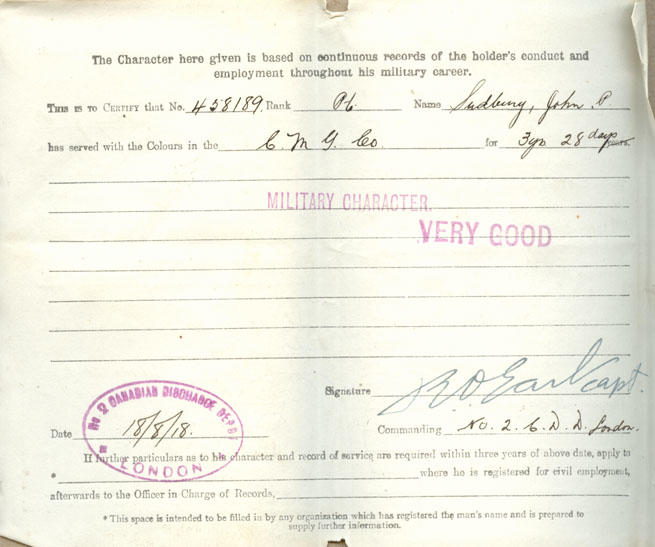 The Character here given is based on continuous records of the holder's conduct and
employment throughout his military career.
THIS IS TO CERTIFY that No. 458189 Rank Pt. Name Sudbury, John P.
has served with the Colours in the C M G Co. for 3yrs 28 days years.
MILITARY CHARACTER.
VERY GOOD
Signature Capt.
No 2 CANADIAN DISCHARGE DEPOT
LONDON
Date 18/8/18.
Commanding No. 2. C. D. D. London.
If further particulars as to his character and record of service are required within three years of above date, apply to
* where he is registered for civil employment,
afterwards to the Officer in Charge of Records,
* This space is intended to be filled in by any organization which has registered the man's name and is prepared to
supply further information.